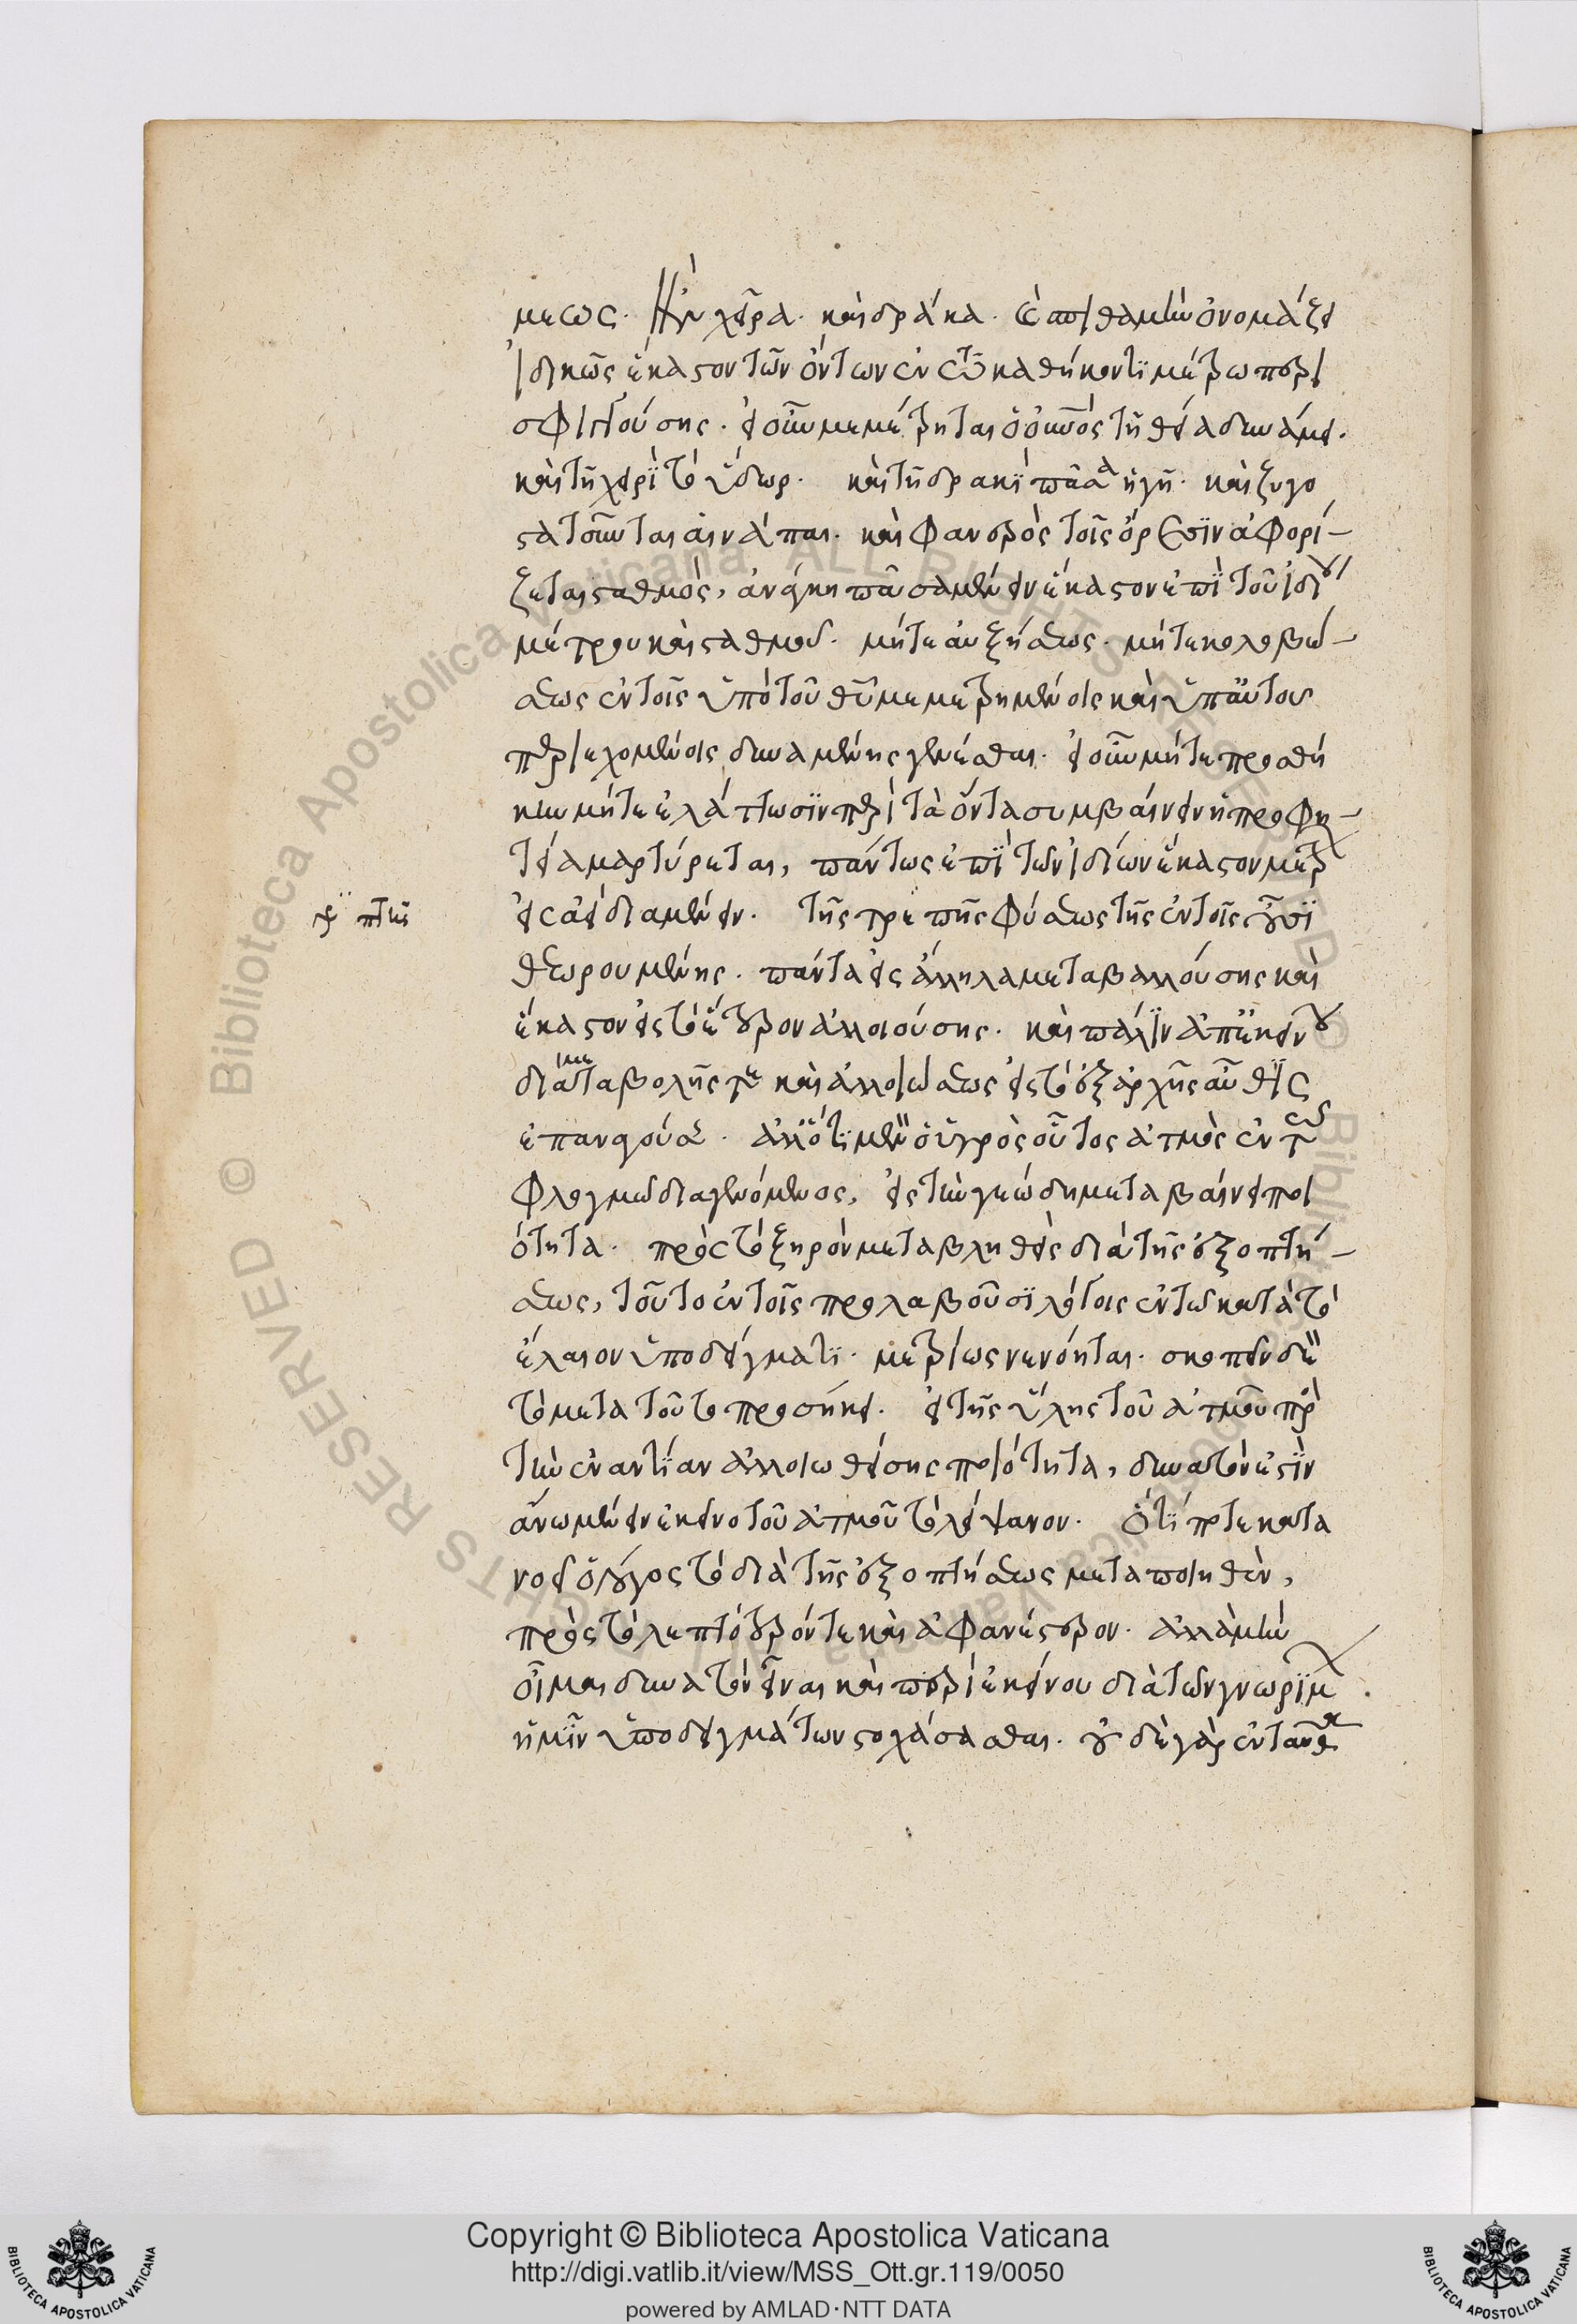 μεως. ἣν χεῖρα. καὶ δράκα. καὶ σπιθαμὴν ὀνομάζει
ἰδικῶς ἕκαστον τῶν ὄντων ἐν τῷ καθήκοντι μέτρω περι
σφιγγούσης. εἰ οὖν μεμέτρηται ὁ οὐνος τῆ θεία δυνάμει.
καὶ τῆ χειρὶ τὸ ὕδωρ. καὶ τῆ δρακὶ πᾶσα ἡ γῆ. καὶ ζυγο
στατοῦνται αἱ νάπαι. καὶ φανερὸς τοῖς ὄρεσιν ἀφορί-
ζεται σταθμός, ἀνάγκη πᾶσα μένειν ἕκαστον ἐπὶ τοῦ ἰδίου
μέτρου καὶ σταθμοῦ. μήτε αὐξήσεως. μήτε κολοβώ-
σεως ἐν τοῖς ὑπὸ τοῦ θυ μεμετρημένοις καὶ ὑπ' αὐτου
περιεχομένοις δυναμένης γενέσθαι. εἰ οὖν μήτε προσθή
κην μήτε ἐλάττωσιν περὶ τὰ ὄντα συμβαίνειν ἡ προφη-
τεία μαρτύρεται, πάντως ἐπὶ τῶν ἰδίων ἕκαστον μέτρ
εἰσαεὶ διαμένειν. τῆς τρεπῆς φύσεως τῆς ἐν τοῖς οὖσι
θεωρουμένης. πάντα εἰς ἄλληλα μεταβαλλούσης καὶ
ἕκαστον εἰς τὸ ἕτερον ἀλλοιούσης. καὶ πάλιν ἀπ' ἐκείνου
διὰ μεταβολῆς τε καὶ ἀλλοιώσεως εἰς τὸ ἐξ ἀρχῆς αὖθις
ἐπαναγούσης. ἀλλ' ὅτι μὲν ὁ ὑγρὸς οὗτος ἀτμὸς ἐν τῶ
φλογμῶ διαγενόμενος, εἰς τὴν γεώδη μεταβαίνει ποι
ότητα. πρὸς τὸ ξηρὸν μεταβληθεὶς διὰ τῆς ἐξοπτή-
σεως, τοῦτο ἐν τοῖς προλαβοῦσι λόγοις ἐν τῶ κατὰ τὸ
ἔλαιον ὑποδείγματι. μετρίως νενόηται. σκοπεῖν δὲ
τὸ μετὰ τοῦτο προσήκει. εἰ τῆς ὕλης τοῦ ἀτμοῦ πρὸ
τὴν ἐναντίαν ἀλλοιωθείσης ποιότητα, δυνατόν ἐστιν
ἄνω μένειν ἐκεῖνο τοῦ ἀτμοῦ τὸ λείψανον. ὅτι ποτε κατα
νοεῖ ὁ λόγος τὸ διὰ τῆς ἐξοπτήσεως μεταποιηθὲν,
πρὸς τὸ λεπτότερόν τε καὶ ἀφανέστερον. ἀλλὰ μὴν
οἶμαι δυνατὸν εἶναι καὶ περὶ ἐκείνου διὰ τῶν γνωρίμ
ἡμῖν ὑποδειγμάτων στοχάσασθαι. οὐδὲ γὰρ ἐνταῦθα